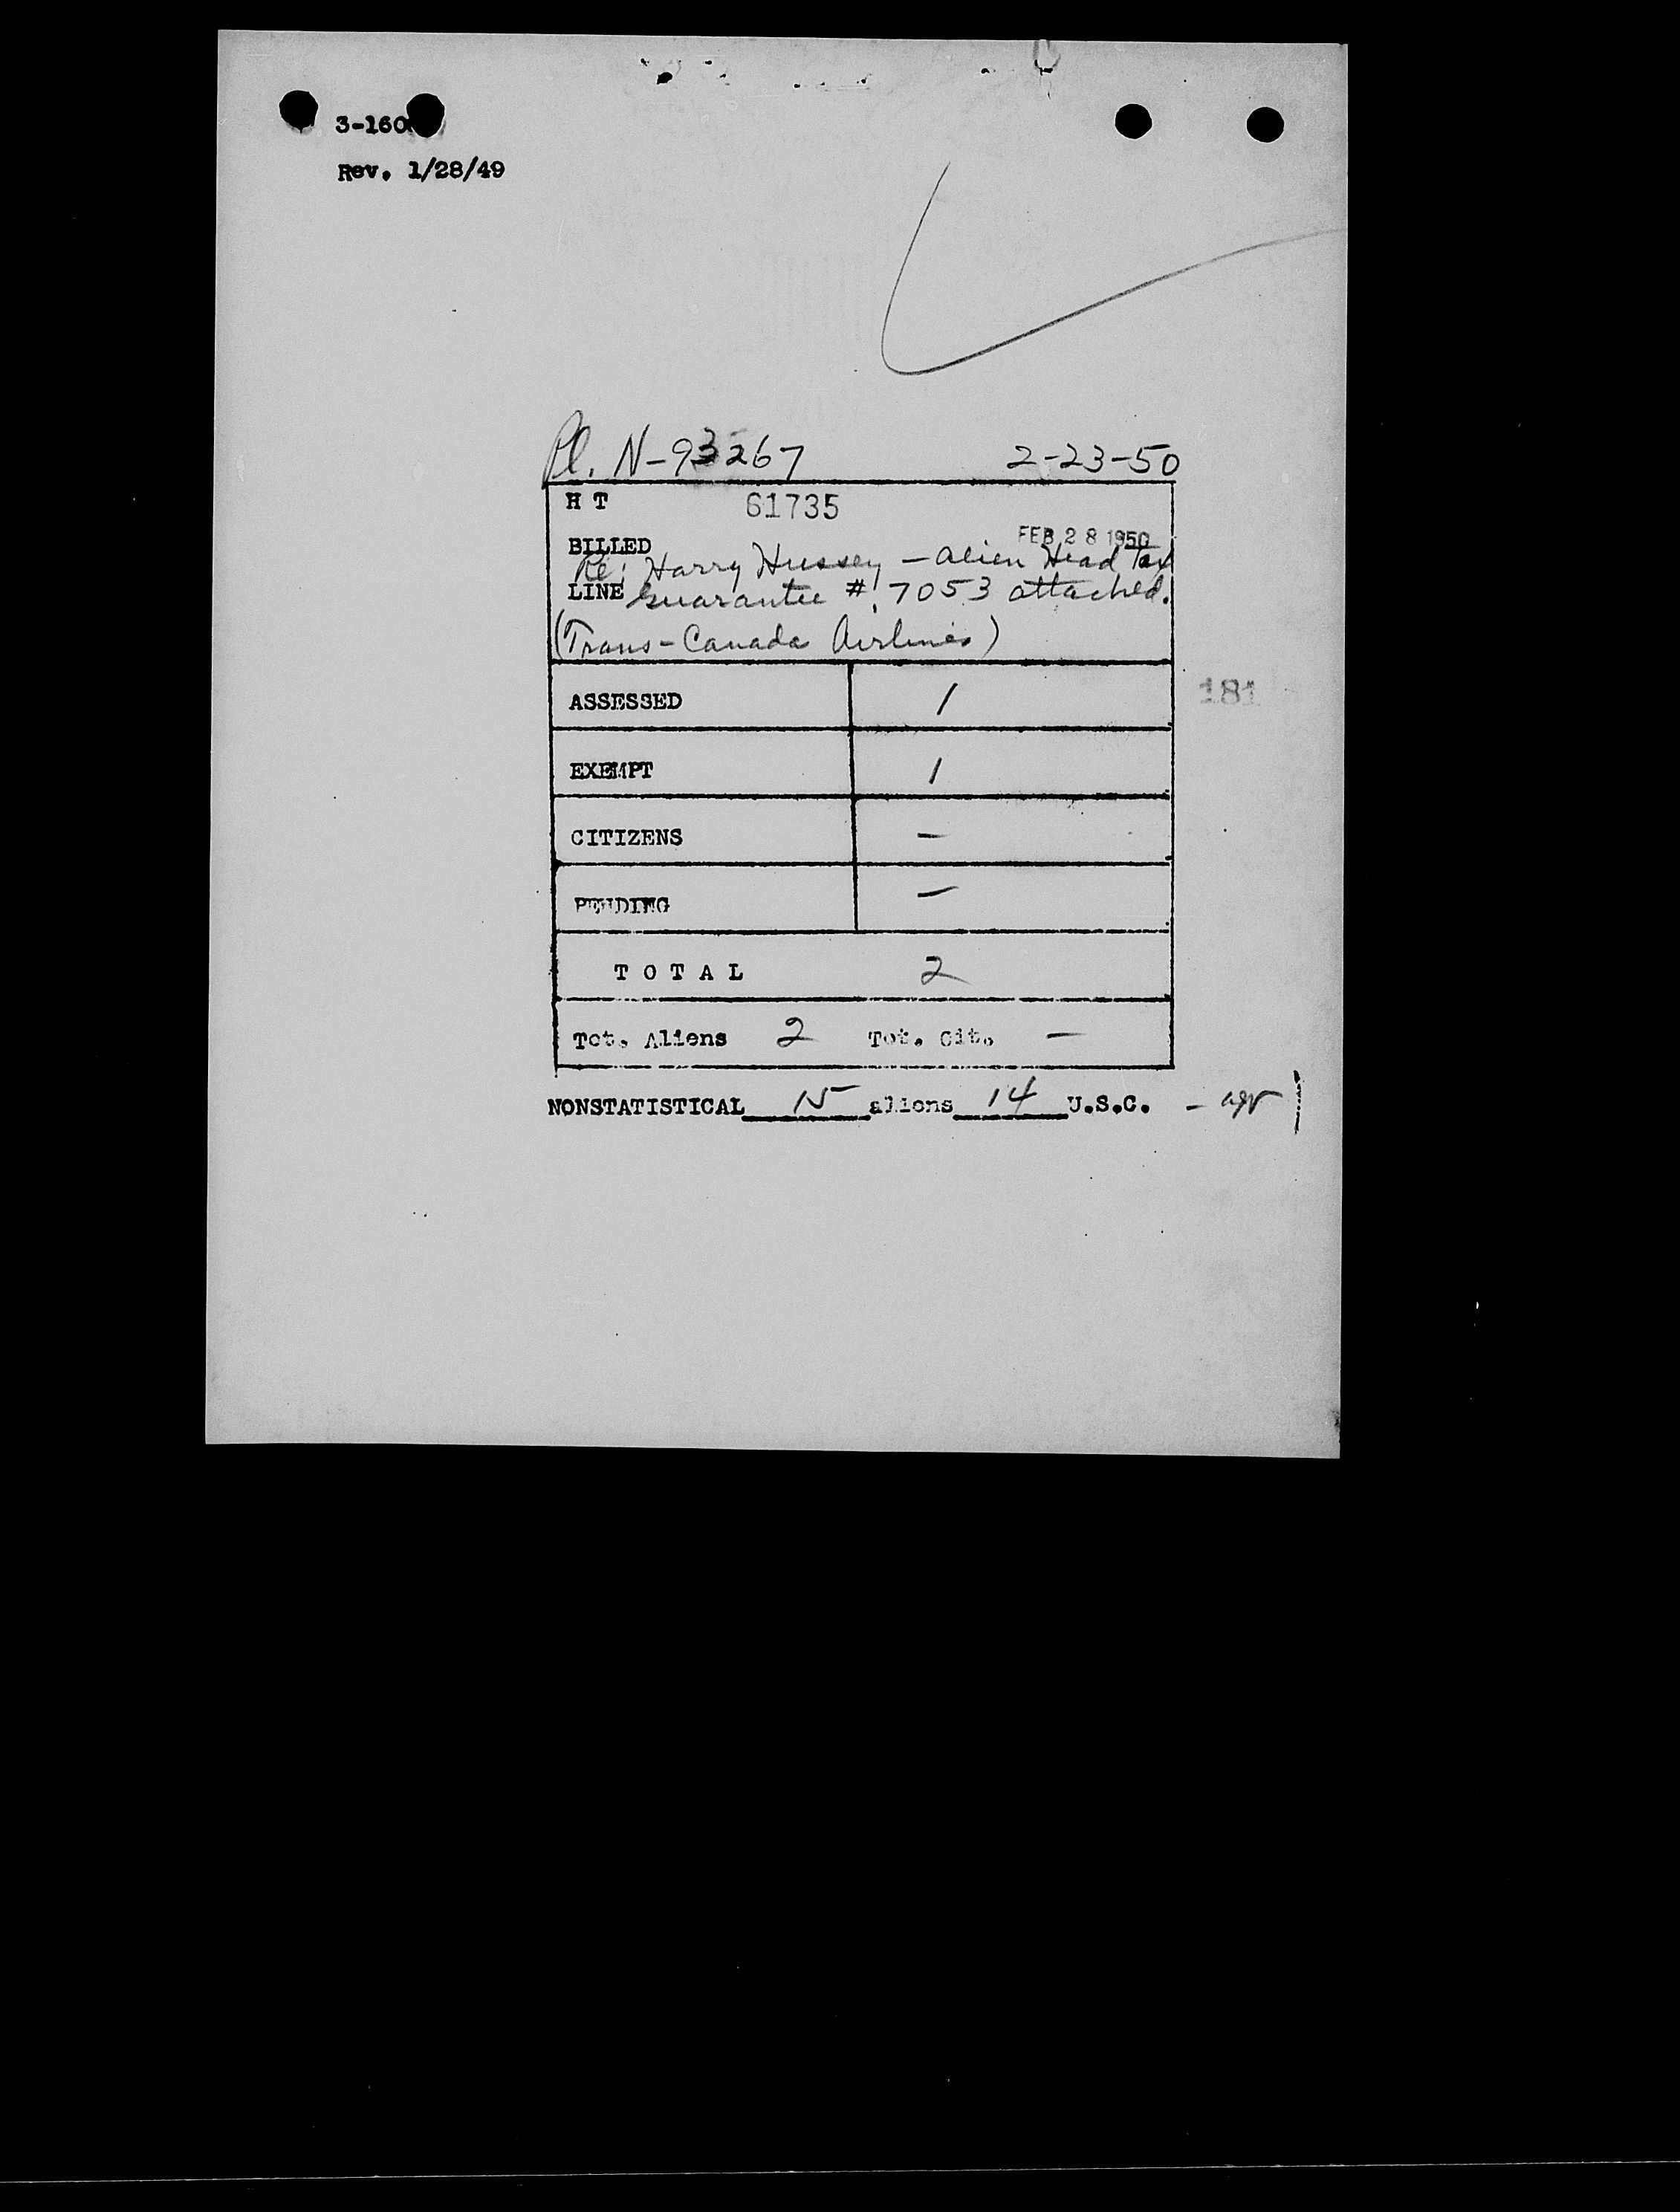 3-160
Rev. 1/28/49
Pl. N-93267 2-23-50
H T 61735
BILLED FEB 28 1950
Re: Harry Hussey - Alien Head Tax
LINE guarantee # 7053 attached.
(Trans-Canada Airlines)
ASSESSED 1
181
EXEMPT 1
CITIZENS -
PENDING -
T O T A L 2
Tot. Aliens 2 Tot. Cit. -
NONSTATISTICAL 15 aliens 14 U.S.C. -